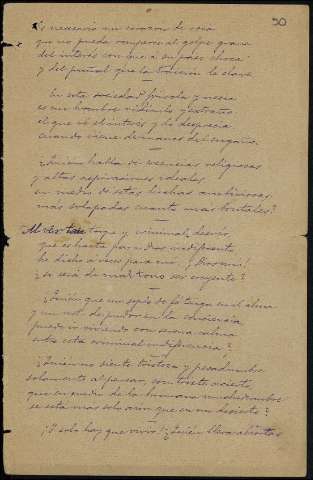 30
Es necesario un corazon de roca
que no pueda romperse al golpe grave
del interés con que á su paso choca
y del puñal que la traicion le clava
En esta sociedad frívola y necia
es un hombre ridículo y extraño
el que vé el interés y lo desprecia
cuando viene de manos del engaño.
¿Quién habla de creencias religiosas
y altas aspiraciones ideales
en medio de estas luchas
más solapadas cuanto más brutales?
Al ver tan torpe y criminal desvío
que es hasta por indiferente
he dicho á veces para mí: ¡Dios mio!
¿no será de mal tono ser creyente?
¿Quién que un soplo de fé tenga en el alma
y un de pudor en la conciencia
puede ir viviendo con serena calma
entre esta criminal indiferencia?
¿Quién no siente tristeza y pesadumbre
solamente al pensar, con triste acierto,
que en medio de la humana muchedumbre
se está mas solo aún que en un desierto?
¡Y solo hay que vivir! ¿Quién lleva abiertas